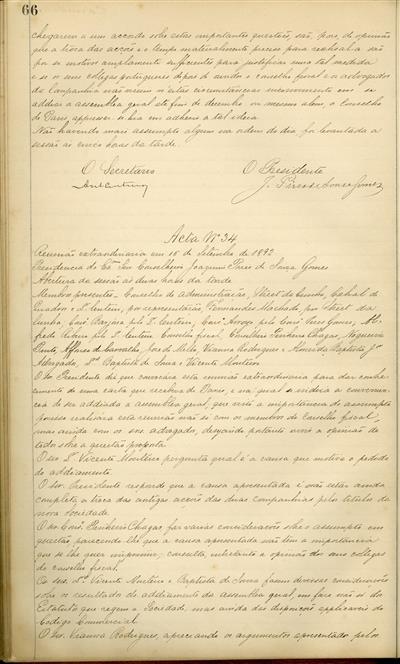 66
chegarem a um accordo sobre estas importantes questões, são, pois, de opinião
que a troca das acções e o tempo materialmente preciso para realisal-a são
por si motivos amplamente sufficientes para justificar uma tal medida
e se os seus collegas portuguezes depois de ouvidos o conselho fiscal e os advogados
da Companhia não virem n'estas circumstancias inconveniente em se
addiar a assemblea geral até fins de dezembro ou mesmo alem, o Conselho
de Paris em adherir a tal ideia.
Não havendo mais assumpto algum na ordem do dia foi levantada a
sessão ás cinco horas da tarde.
O Secretario O Presidente
J. Pires de Souza Gomes
Acta Nº 34
Reunião extraordinaria em 15 de Setembro de 1892
Presidencia do Exmo Snr Conselheiro Joaquim Pires de Souza Gomes
Abertura da sessão ás duas horas da tarde
Membros presentes - Conselho de administração,
por representação, Fernandes Machado, por
Cunha, Cons.
Conselho fiscal, Conselheiro Pinheiro Chagas,
Affonso de Carvalho, José de Mello, Vianna Rodrigues e Almeida Baptista Jor
Advogados, Drs Baptista de Souza e Vicente Monteiro
O Snr Presidente diz que convocára esta reunião extraordinaria para dar conhe-
cimento de uma carta que recebera de Paris, e na qual se indica a convenien-
cia de ser addiada a assemblea geral, que visto a importancia do assumpto
quizera realisar esta reunião não só com os membros do Conselho fiscal,
mas ainda com os snrs advogados, desejando portanto ouvir a opinião de
todos sobre a questão proposta.
O snr Dr Vicente Monteiro pergunta qual é a causa que motiva o pedido
do addiamento.
O snr Presidente responde que a causa apresentada é não estar ainda
completa a troca das antigas acções das duas companhias pelos titulos da
nova Sociedade.
O snr Cons. Pinheiro Chagas, faz varias considerações sobre o assumpto em
questão, parecendo-lhe que a causa apresentada não tem a importancia
que se lhe quer imprimir; consulta, entretanto a opinião dos seus collegas
do conselho fiscal.
Os snrs. Drs Vicente Monteiro e Baptista de Souza fazem diversas considerações
sobre os resultados do addiamento da assemblea geral, em face não só dos
Estatutos que regem a Sociedade, mas ainda das disposições applicaveis do
Codigo Commercial.
O Snr. Vianna Rodrigues, apreciando os argumentos apresentados pelos